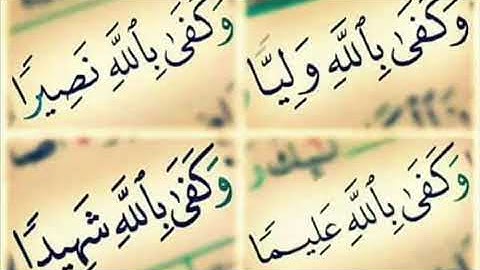 وَكَفَىٰ بِٱللَّهِ وَلِيًّا
وَكَفَىٰ بِٱللَّهِ نَصِيرًا
وَكَفَىٰ بِٱللَّهِ عَلِيمًا
وَكَفَىٰ بِٱللَّهِ شَهِيدًا